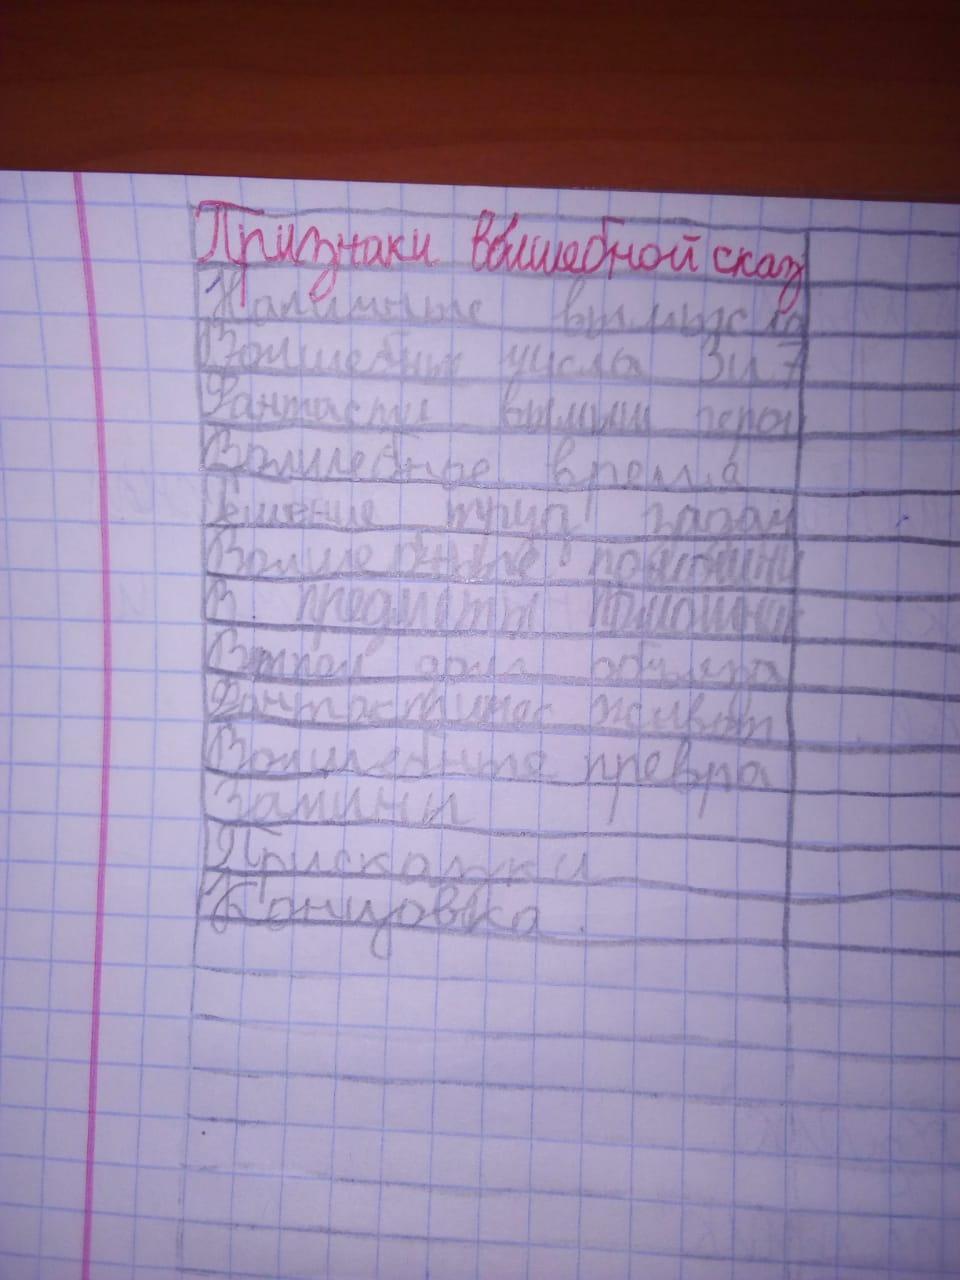 Признаки волшебной сказ
Наличные вымысла
Волшебные числа 3 и 7
Фантасти вымыш герои
Волшебное время
Решение труд задач
Волшебные помошни
В. предметы помошни
Фантастичес живот
Волшебные превра
Зачины
Присказки
Концовка.